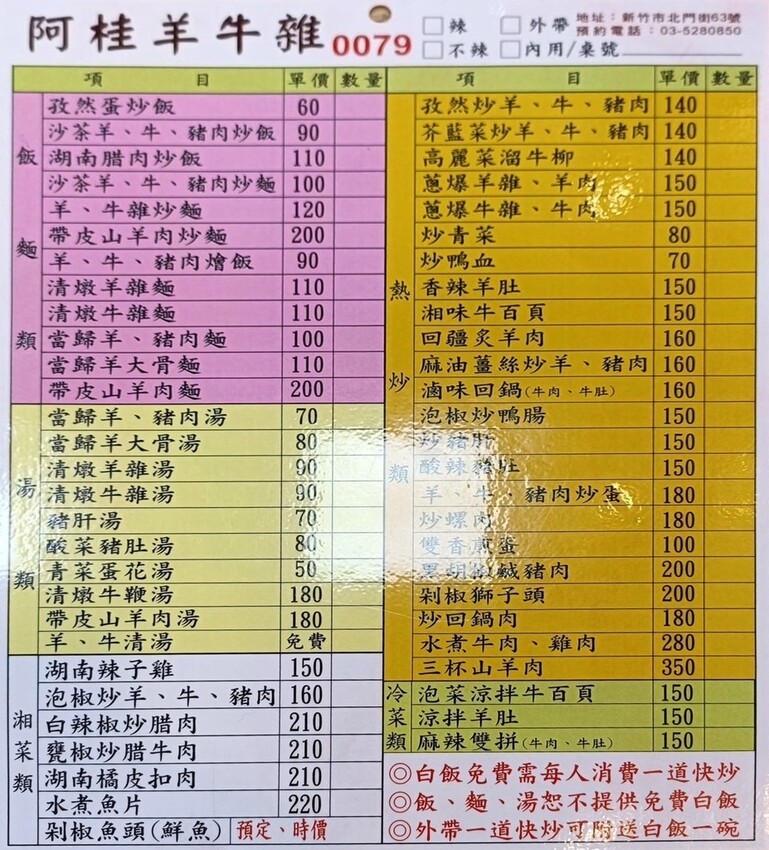 阿桂羊牛雜 0079
□辣 □外帶 地址：新竹市北門街63號
□不辣 □內用/桌號 預約電話：03-5280850
項目 單價 數量
飯麵類
孜然蛋炒飯 60
沙茶羊、牛、豬肉炒飯 90
湖南腊肉炒飯 110
沙茶羊、牛、豬肉炒麵 100
羊、牛雜炒麵 120
帶皮山羊肉炒麵 200
羊、牛、豬肉燴飯 90
清燉羊雜麵 110
清燉牛雜麵 110
當歸羊、豬肉麵 100
當歸羊大骨麵 110
帶皮山羊肉麵 200
湯類
當歸羊、豬肉湯 70
當歸羊大骨湯 80
清燉羊雜湯 90
清燉牛雜湯 90
豬肝湯 70
酸菜豬肚湯 80
青菜蛋花湯 50
清燉牛鞭湯 180
帶皮山羊肉湯 180
羊、牛清湯 免費
湘菜類
湖南辣子雞 150
泡椒炒羊、牛、豬肉 160
白辣椒炒腊肉 210
甕椒炒腊牛肉 210
湖南橘皮扣肉 210
水煮魚片 220
剁椒魚頭(鮮魚) 預定、時價
項目 單價 數量
熱炒類
孜然炒羊、牛、豬肉 140
芥藍菜炒羊、牛、豬肉 140
高麗菜溜牛柳 140
蔥爆羊雜、羊肉 150
蔥爆牛雜、牛肉 150
炒青菜 80
炒鴨血 70
香辣羊肚 150
湘味牛百頁 150
回疆炙羊肉 160
麻油薑絲炒羊、豬肉 160
滷味回鍋(牛肉、牛肚) 160
泡椒炒鴨腸 150
炒豬肝 150
酸辣豬肚 150
羊、牛、豬肉炒蛋 180
炒螺肉 180
雙香煎蛋 100
黑胡椒鹹豬肉 200
剁椒獅子頭 200
炒回鍋肉 180
水煮牛肉、雞肉 280
三杯山羊肉 350
冷菜類
泡菜涼拌牛百頁 150
涼拌羊肚 150
麻辣雙拼(牛肉、牛肚) 150
◎白飯免費需每人消費一道快炒
◎飯、麵、湯恕不提供免費白飯
◎外帶一道快炒可附送白飯一碗